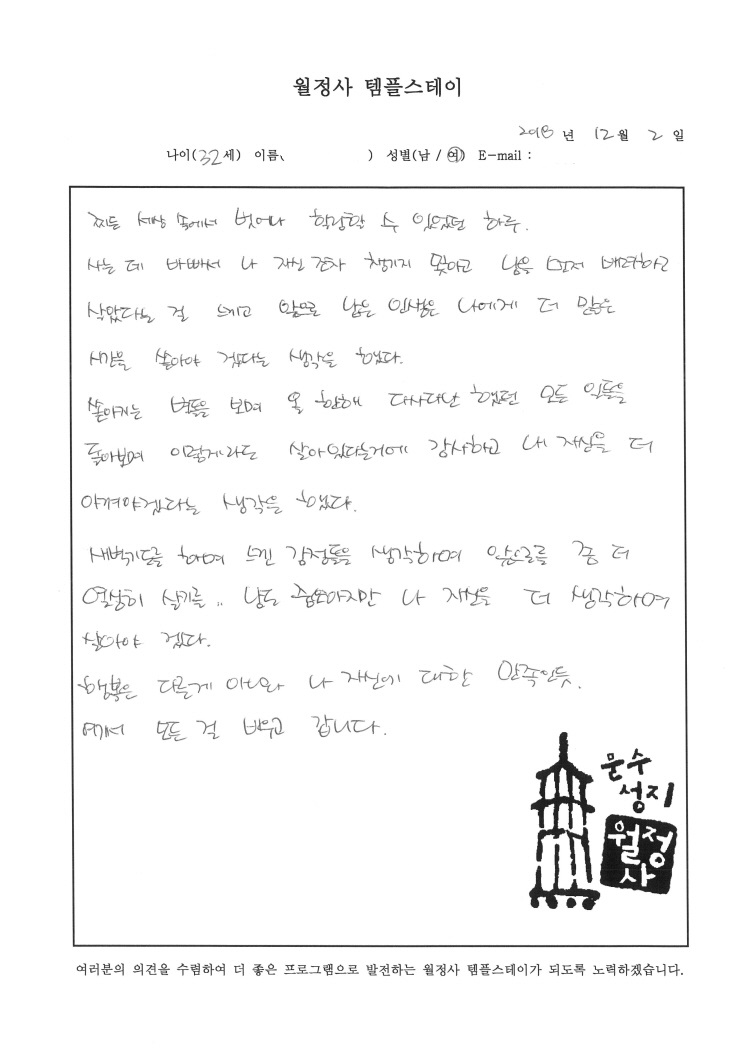 월정사 템플스테이
2018 년 12월 2 일
나이(32세) 이름( ) 성별(남 / 여) E-mail :
찌든 세상 속에서 벗어나 힐링할 수 있었던 하루.
사는 데 바빠서 나 자신 조차 챙기지 못하고 남을 먼저 배려하고
살았다는 걸 느끼고 앞으로 남은 인생은 나에게 더 많은
시간을 쏟아야 겠다는 생각을 했다.
쏟아지는 별들을 보며 올 한해 다사다난 했던 모든 일들을
돌아보며 이렇게라도 살아있다는거에 감사하고 내 자신을 더
아껴야겠다는 생각을 했다.
새벽기도를 하며 느낀 감정들을 생각하며 앞으로를 좀 더
열심히 살기를.. 남도 중요하지만 나 자신을 더 생각하며
살아야 겠다.
행복은 다른게 아니라 나 자신에 대한 만족인듯.
여기서 모든 걸 배우고 갑니다.
문수
성지
월정
사
여러분의 의견을 수렴하여 더 좋은 프로그램으로 발전하는 월정사 템플스테이가 되도록 노력하겠습니다.